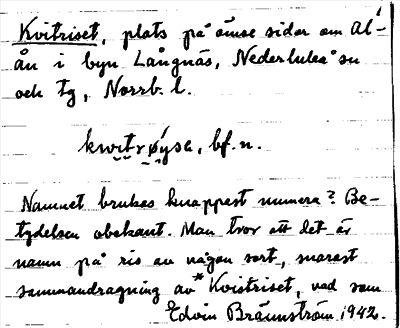 Kvitriset, plats på ömse sidor om Al-
ån i byn Långnäs, Nederluleå sn
och tg, Norrb. l.
bf. n.
Namnet brukas knappast numera? Be-
tydelsen obekant. Man tror att det är
namn på ris av någon sort, snarast
sammandragning av *Kvistriset, vad som
Edvin Brännström 1942.